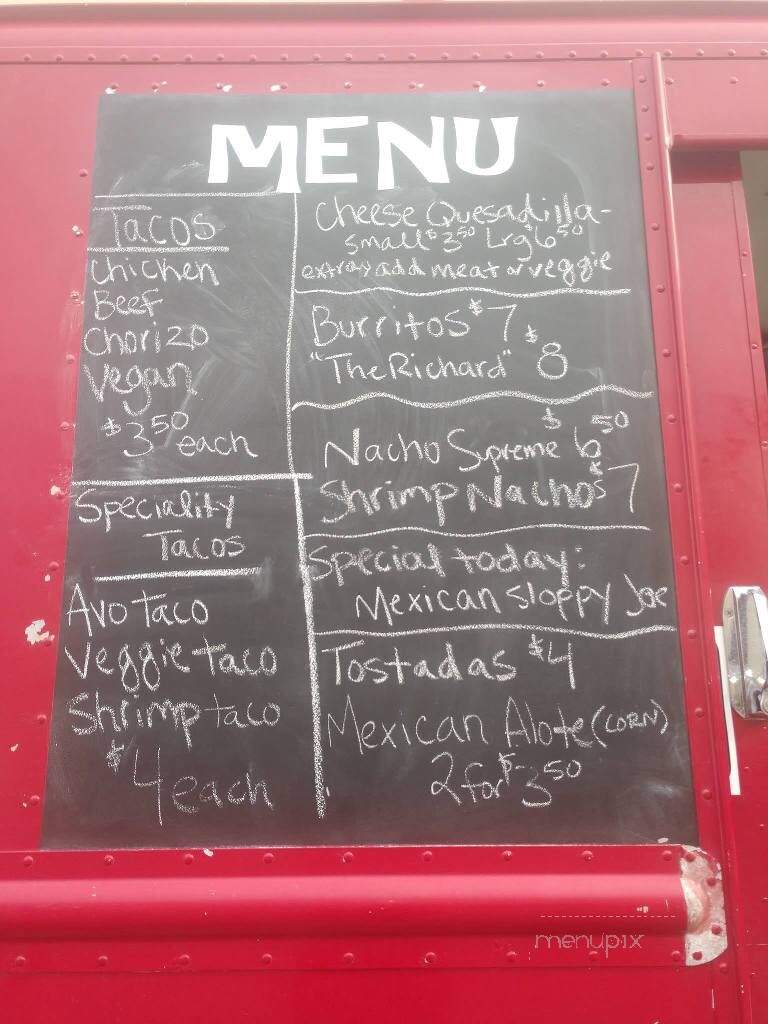 MENU
Tacos
Chicken
Beef
Chorizo
Vegan
$3.50 each
Speciality
Tacos
Avo Taco
Veggie taco
Shrimp taco
$4 each
Cheese Quesadilla-
small $3.50 Lrg $6.50
extra, add meat or veggie
Burritos $7
"The Richard" $8
Nacho Supreme $6.50
Shrimp Nachos $7
Special today:
Mexican sloppy Joe
Tostadas $4
Mexican Alote (CORN)
2 for $3.50
menupix